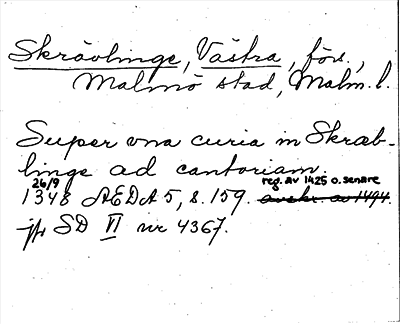 Skrävlinge, Västra, förs.,
Malmö stad, Malm. l.
Super vna curia in Skræb-
linge ad cantoriam.
26/9 reg. av 1425 o. senare
1348 ÆDA 5, s. 159. avskr. av 1494.
jfr SD VI nr 4367.